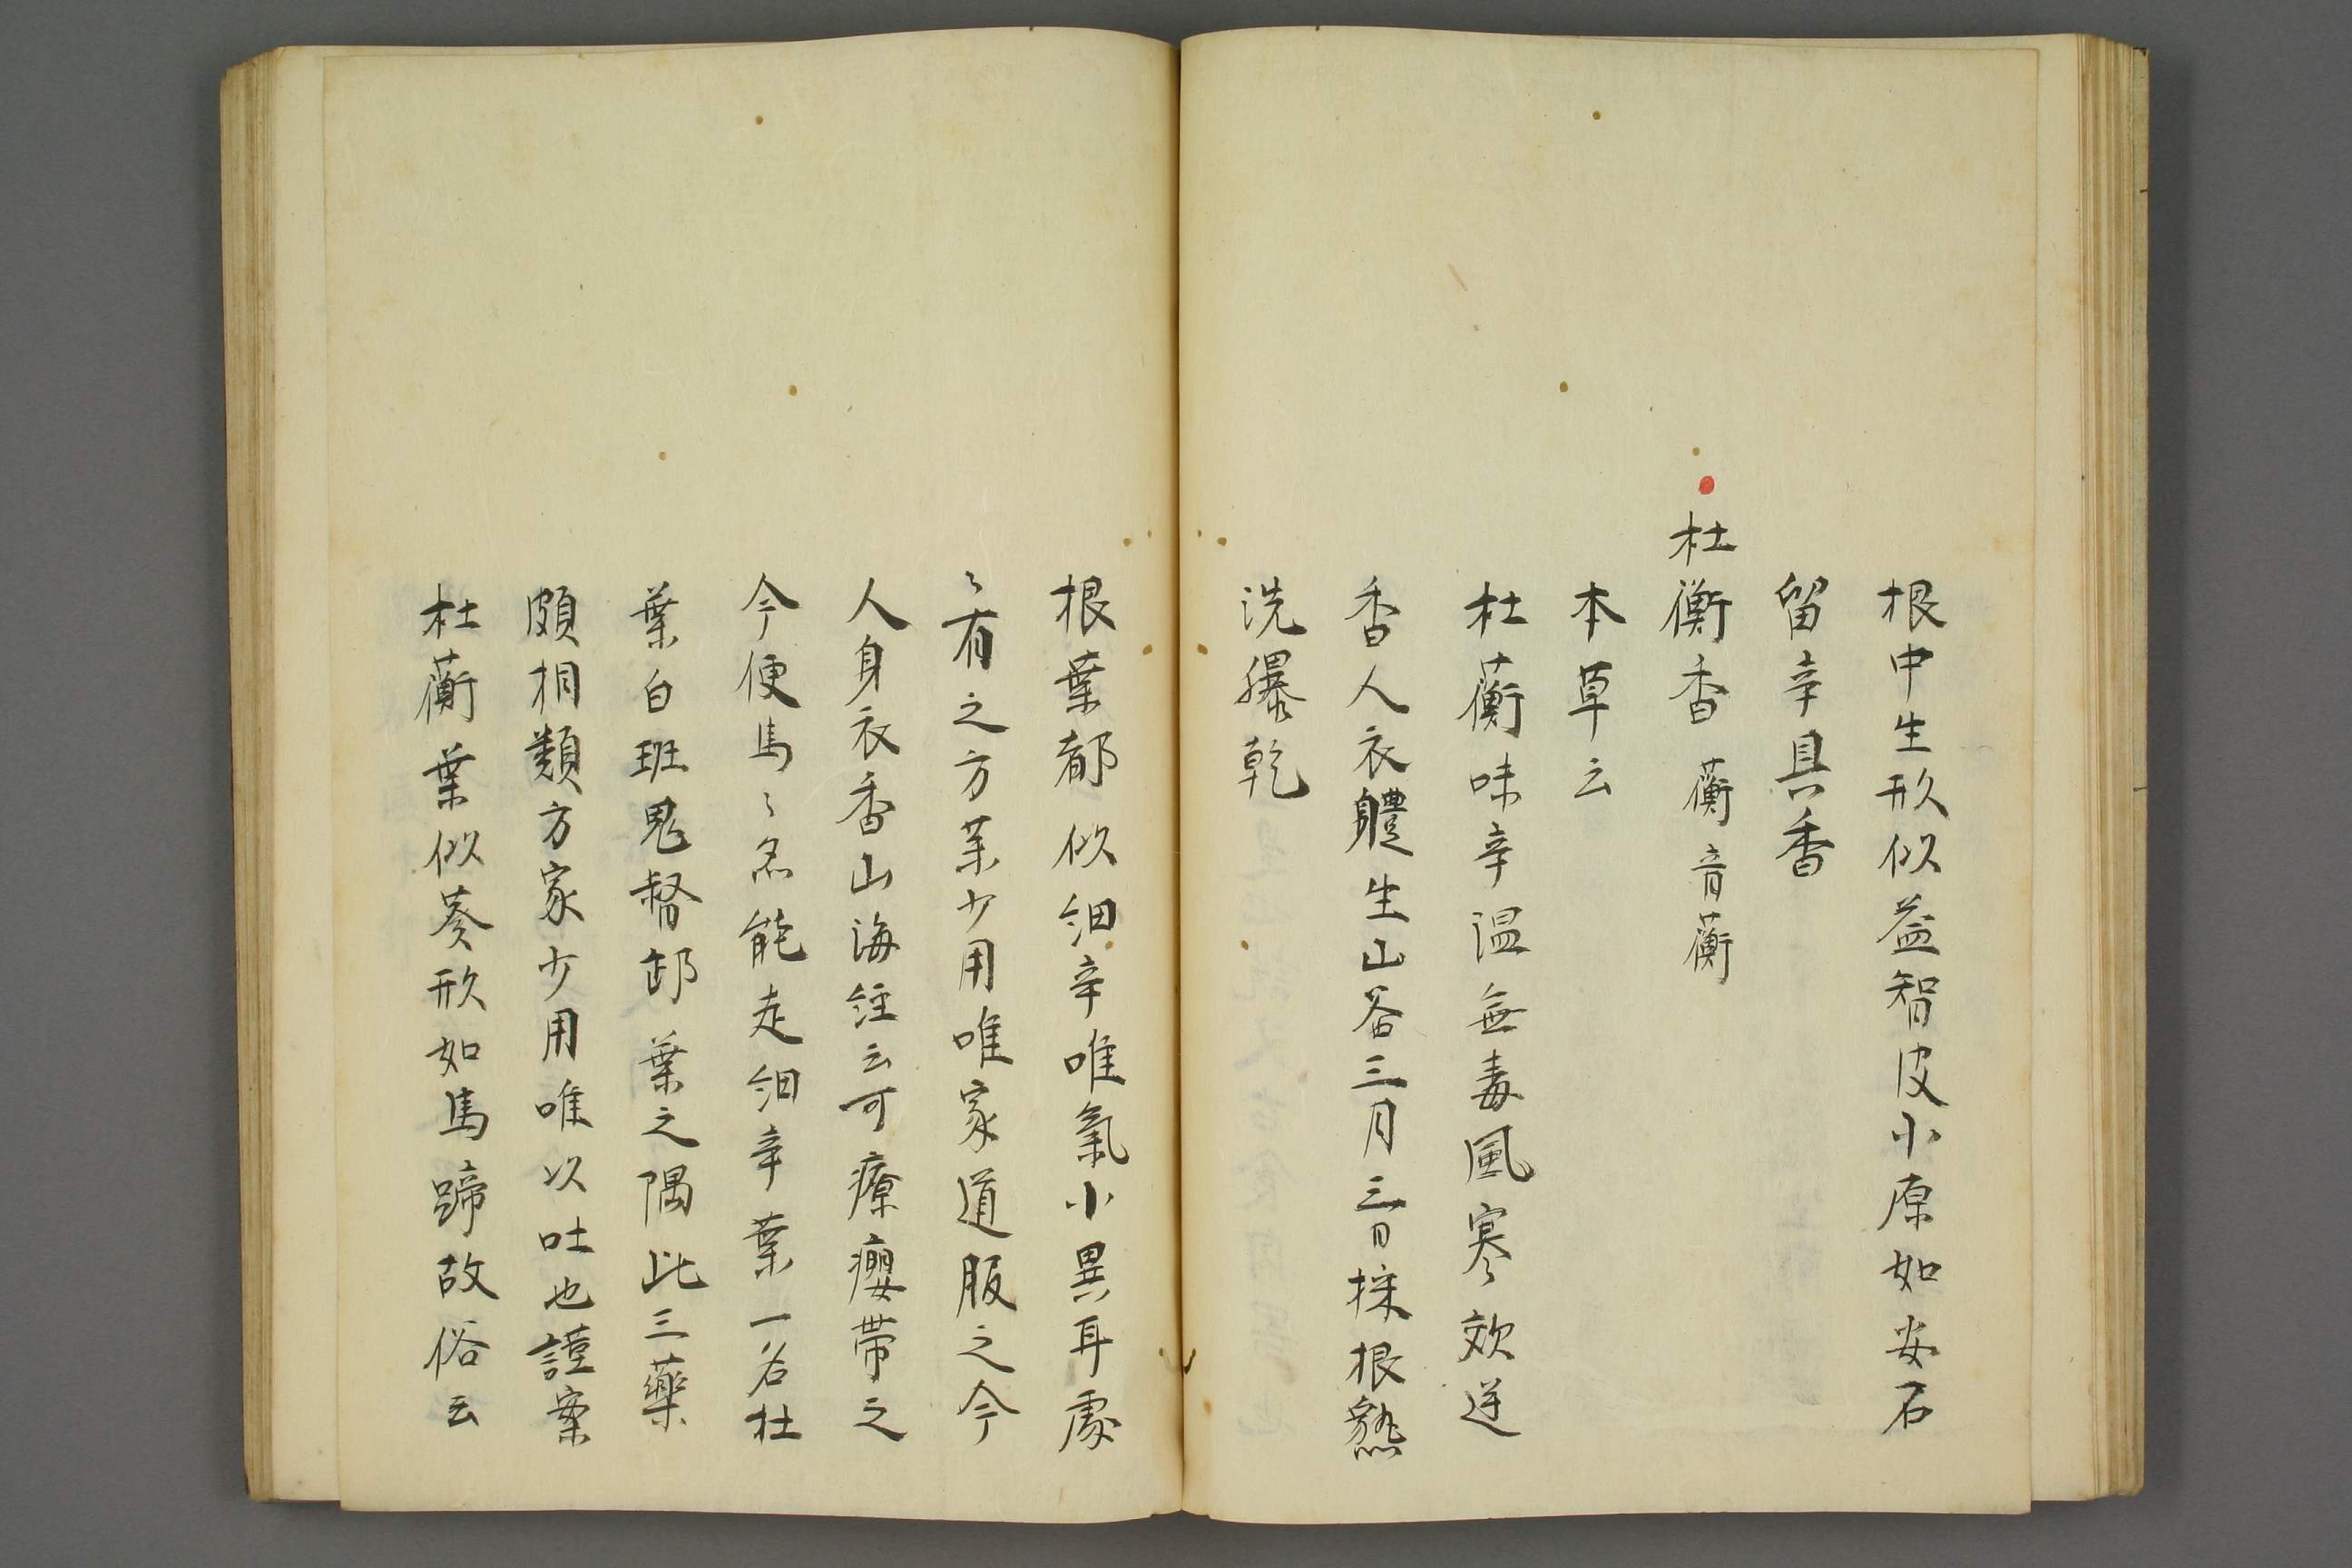 根中生形似益智皮小原如安石
留辛具香
杜衡香 蘅音蘅
本草云
杜蘅味辛温無毒風寒欬逆
香人衣軆生山谷三月三日採根熟
洗曝乾
根葉都似細辛唯氣小異耳處
〻有之方藥少用唯家道服之今
人身衣香山海經云可療癭帶之
今便馬〻名能走細辛葉一名杜
葉白班鬼督郵葉之隅此三藥
頗相類方家少用唯以吐也謹案
杜蘅葉似葵形如馬蹄故俗云